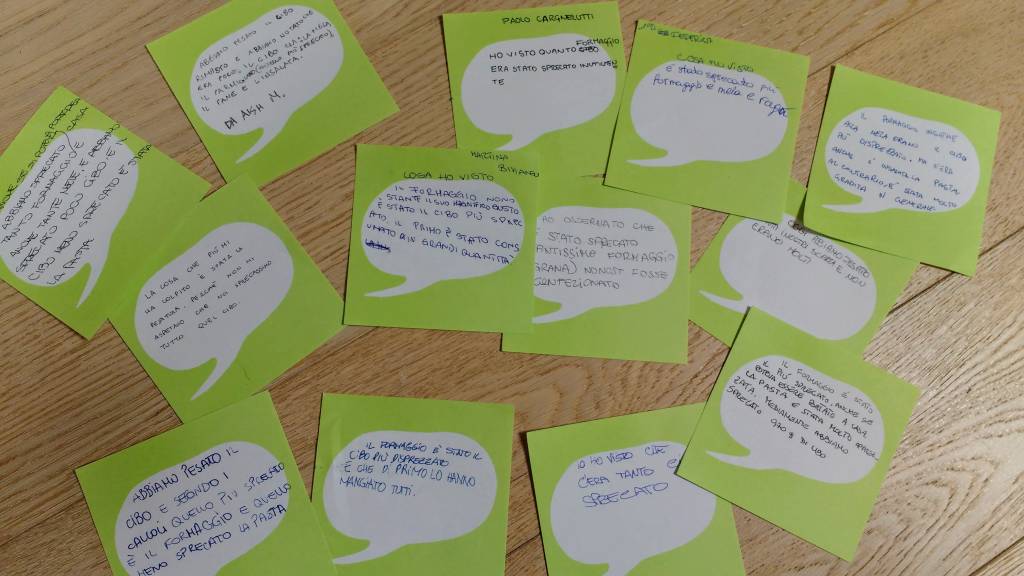 ABBIAMO PESATO IL CIBO
RIMASTO E ABBIAMO NOTATO CHE
ERA POCO, IL CIBO ERA: LA MELA
IL PANE E L'INSALATA.
DA AISH M.
PAOLO CARGNELUTTI
FORMAGGIO
HO VISTO QUANTO CIBO
ERA STATO SPRECATO INUTILMEN
TE
FEDERICA
COSA HO VISTO
È stato sprecato più
formaggio e mela e
IL FORMAGGIO INSIEME
ALLA MELA ERANO IL CIBO
PIÙ DISPREZZATO, MA PER
ANCHE L'INSALATA. LA PASTA
AL CONTRARIO, È STATA MOLTO
GRADITA IN GENERALE
ABBIAMO SPRECATO
TANTO FORMAGGIO E
ANCHE TANTE MELE E ABBIAMO
SPRECATO POCO CIBO E IL
CIBO MENO SPRECATO È STATA
LA PASTA
LA COSA CHE PIÙ MI
HA COLPITO È STATA LA
PESATURA. PERCHÉ NON MI
ASPETTAVO CHE NOI SPRECASSIMO
TUTTO QUEL CIBO.
MARTINA
COSA HO VISTO
IL FORMAGGIO NONO
STANTE IL SUO MAGNIFICO GUSTO
È STATO IL CIBO PIÙ SPREC
ATO, IL PRIMO È STATO CONS
UMATO IN GRANDI QUANTITÀ
HO OSSERVATO CHE
È STATO SPRECATO
TANTISSIMO FORMAGGIO
(GRANA) NONOST FOSSE
CONFEZIONATO
ABBIAMO PESATO
TUTTI I NOSTRI SCARTI E NON
ERANO MOLTI
IL FORMAGGIO È STATO
IL PIÙ SPRECATO, ANCHE SE
POTEVA ESSERE PORTATO A CASA.
LA PASTA È STATA MOLTO APPREZ
ZATA. MEDIAMENTE ABBIAMO
SPRECATO 970 g DI CIBO
ABBIAMO PESATO IL
CIBO E SECONDO I
CALCOLI QUELLO PIÙ SPRECATO
È IL FORMAGGIO E QUELLO
MENO SPRECATO LA PASTA
IL FORMAGGIO È STATO IL
CIBO PIÙ DISPREZZATO
E CHE IL PRIMO LO HANNO
MANGIATO TUTTI.
IO HO VISTO CHE
C'ERA TANTO CI
SPRECATO